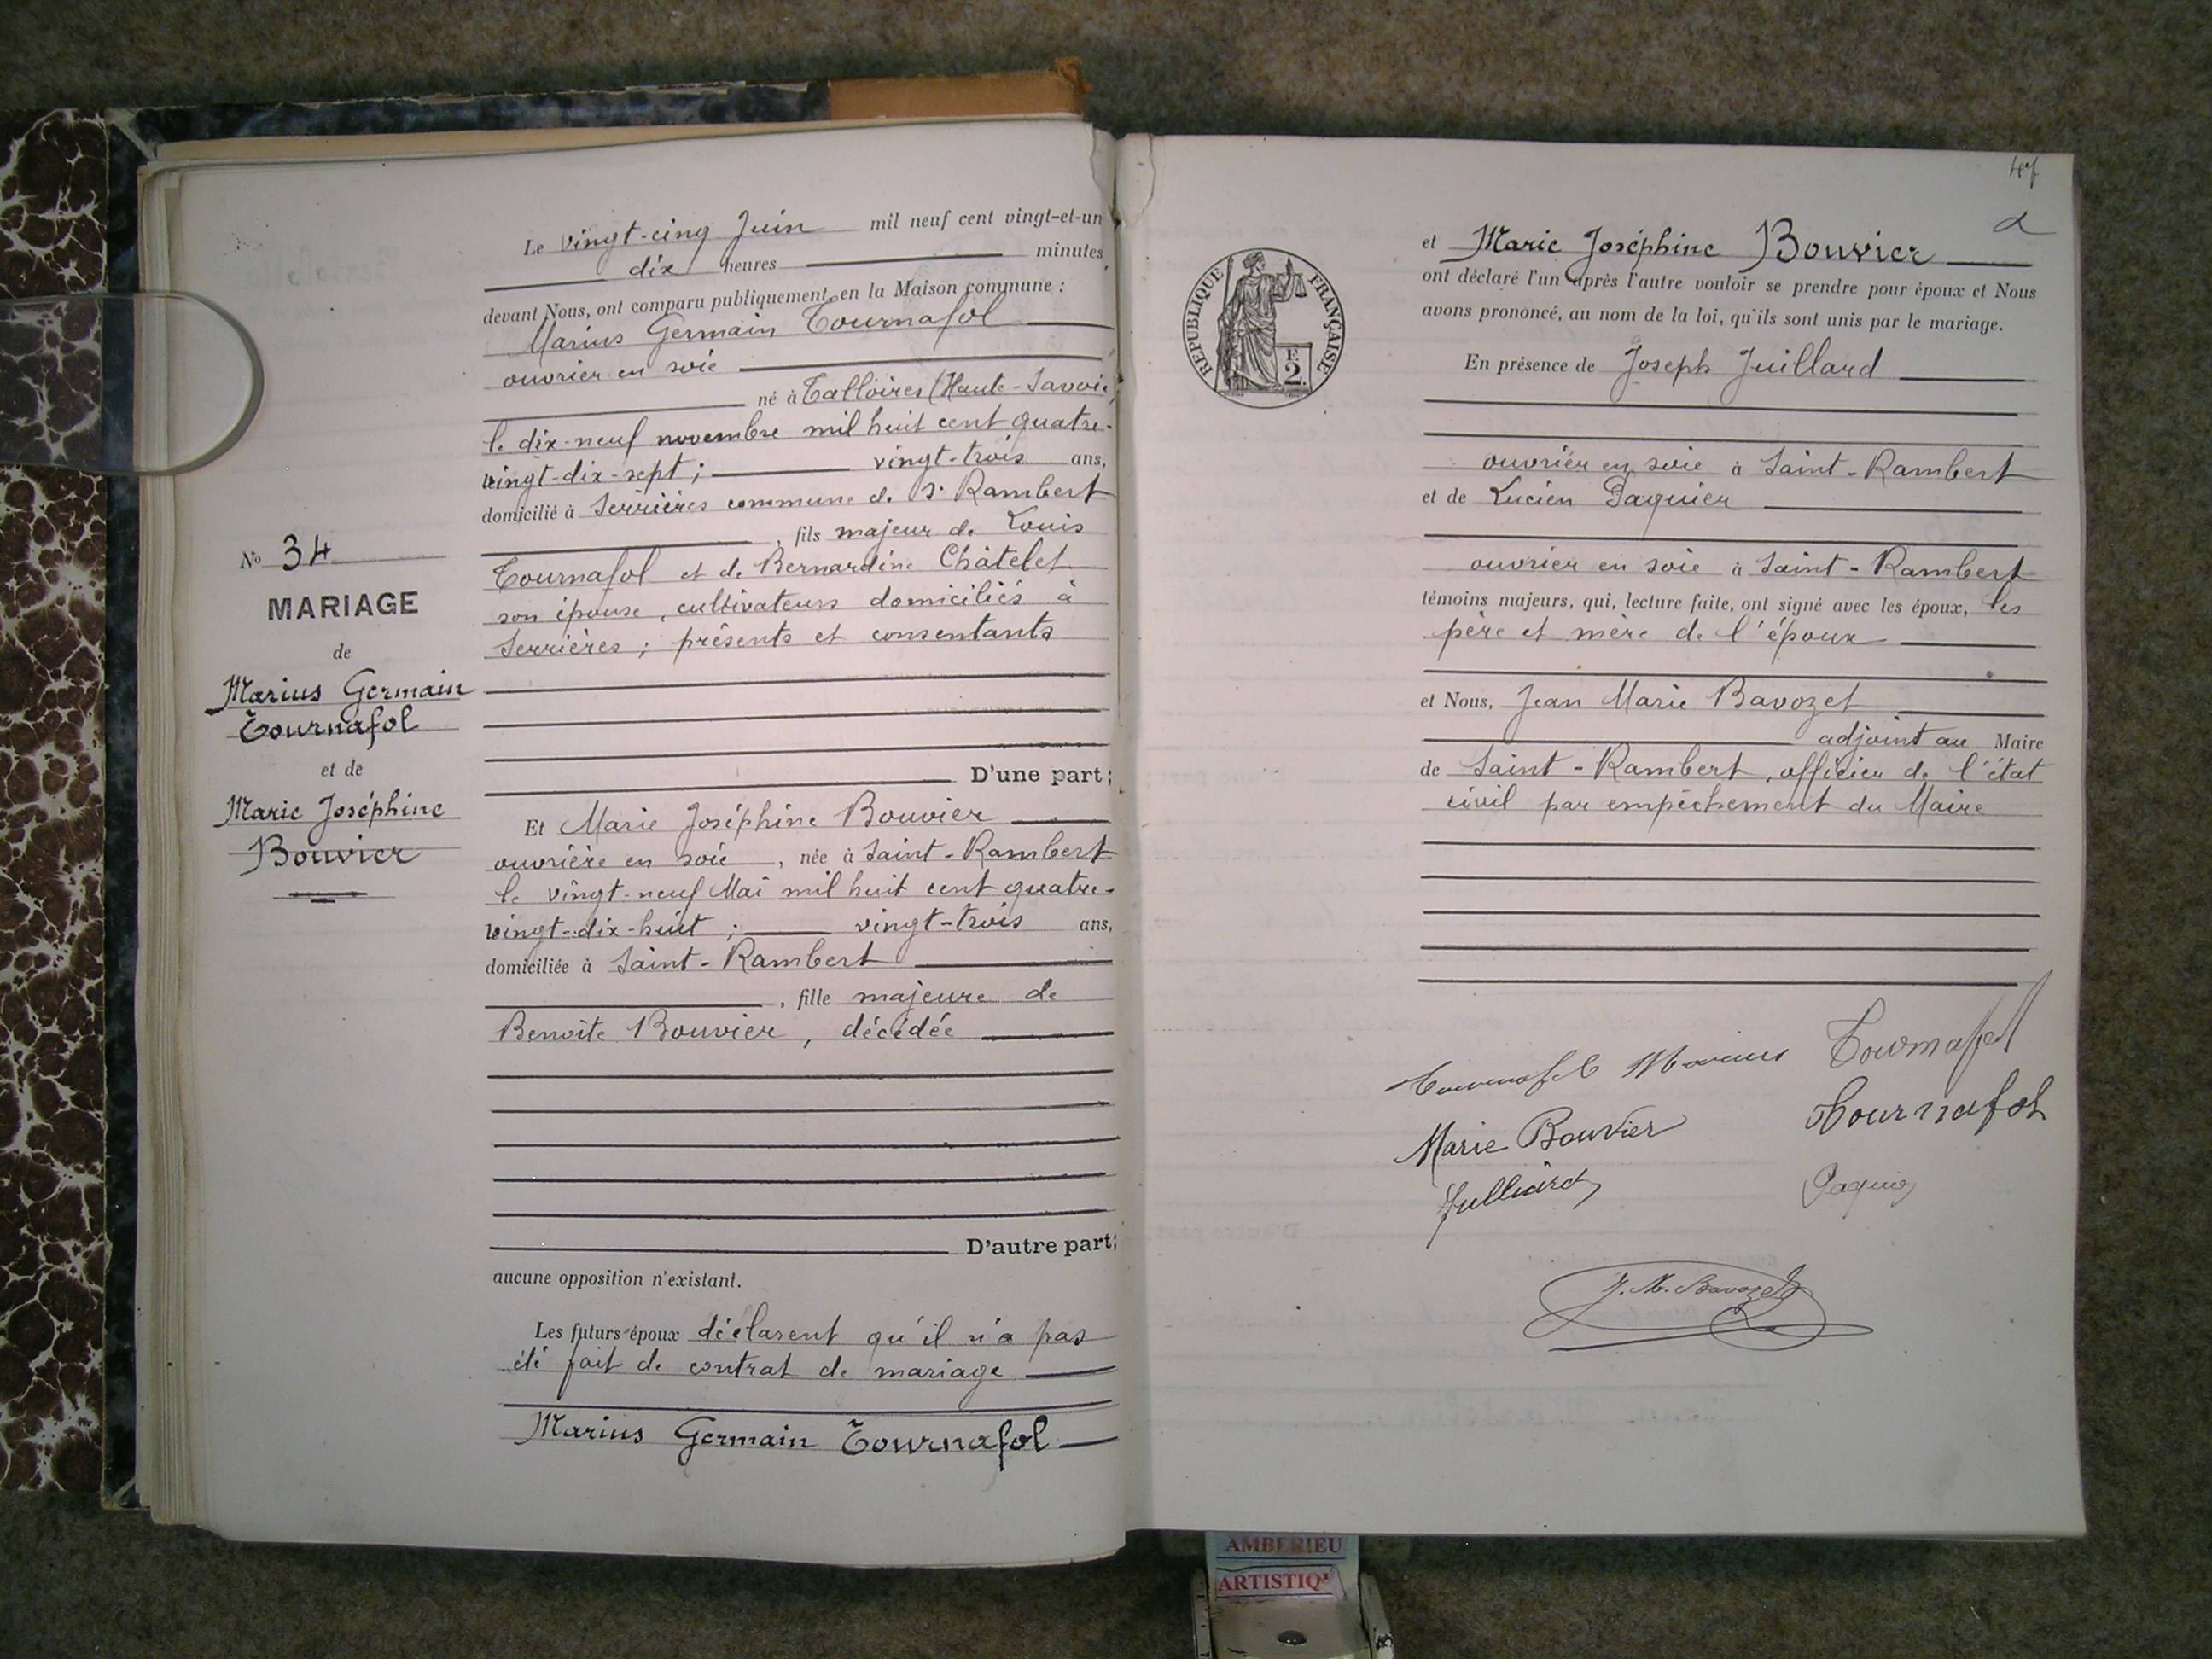 Le vingt-cinq Juin mil neuf cent vingt-et-un
dix heures minutes,
devant Nous, ont comparu publiquement en la Maison commune :
Marius Germain Tournafol
ouvrier en soie
né à Talloires (Haute-Savoie)
le dix-neuf novembre mil huit cent quatre-
vingt-dix-sept ; vingt-trois ans,
domicilié à Serrières commune de St Rambert
, fils majeur de Louis
Tournafol et de Bernardine Châtelet
son épouse, cultivateurs domiciliés à
Serrières ; présents et consentants
D'une part ;
Et Marie Joséphine Bouvier
ouvrière en soie , née à Saint-Rambert
le vingt-neuf Mai mil huit cent quatre-
vingt-dix-huit ; vingt-trois ans,
domiciliée à Saint-Rambert
, fille majeure de
Benoîte Bouvier, décédée
D'autre part ;
aucune opposition n'existant.
Les futurs époux déclarent qu'il n'a pas
été fait de contrat de mariage
Marius Germain Tournafol
No 34
MARIAGE
de
Marius Germain
Tournafol
et de
Marie Joséphine
Bouvier
47
REPUBLIQUE FRANÇAISE
F.
2.
et Marie Joséphine Bouvier
ont déclaré l'un après l'autre vouloir se prendre pour époux et Nous
avons prononcé, au nom de la loi, qu'ils sont unis par le mariage.
En présence de Joseph Juillard
ouvrier en soie à Saint-Rambert
et de Lucien Paquier
ouvrier en soie à Saint-Rambert
témoins majeurs, qui, lecture faite, ont signé avec les époux, les
père et mère de l'époux
et Nous, Jean Marie Bavozet
adjoint au Maire
de Saint-Rambert, officier de l'état
civil par empêchement du Maire
Tournafol Marius Tournafol
Marie Bouvier Tournafol
Julliard Paquier
J. M. Bavozet
AMBERIEU
ARTISTIQ